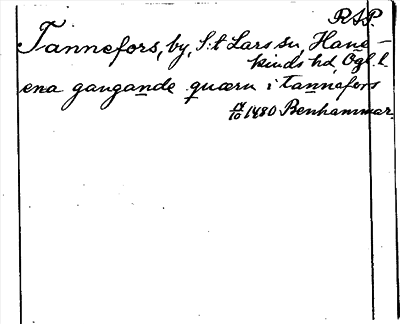 RAP.
Tannefors, by, S:t Lars sn, Hane-
kinds hd, Ögl. l.
ena gangande quærn i tannafors
17/10 1480 Benhammar.